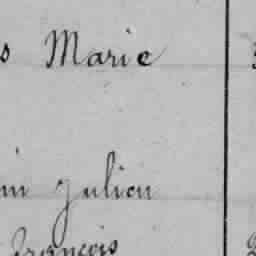 s Marie
in Julien
François